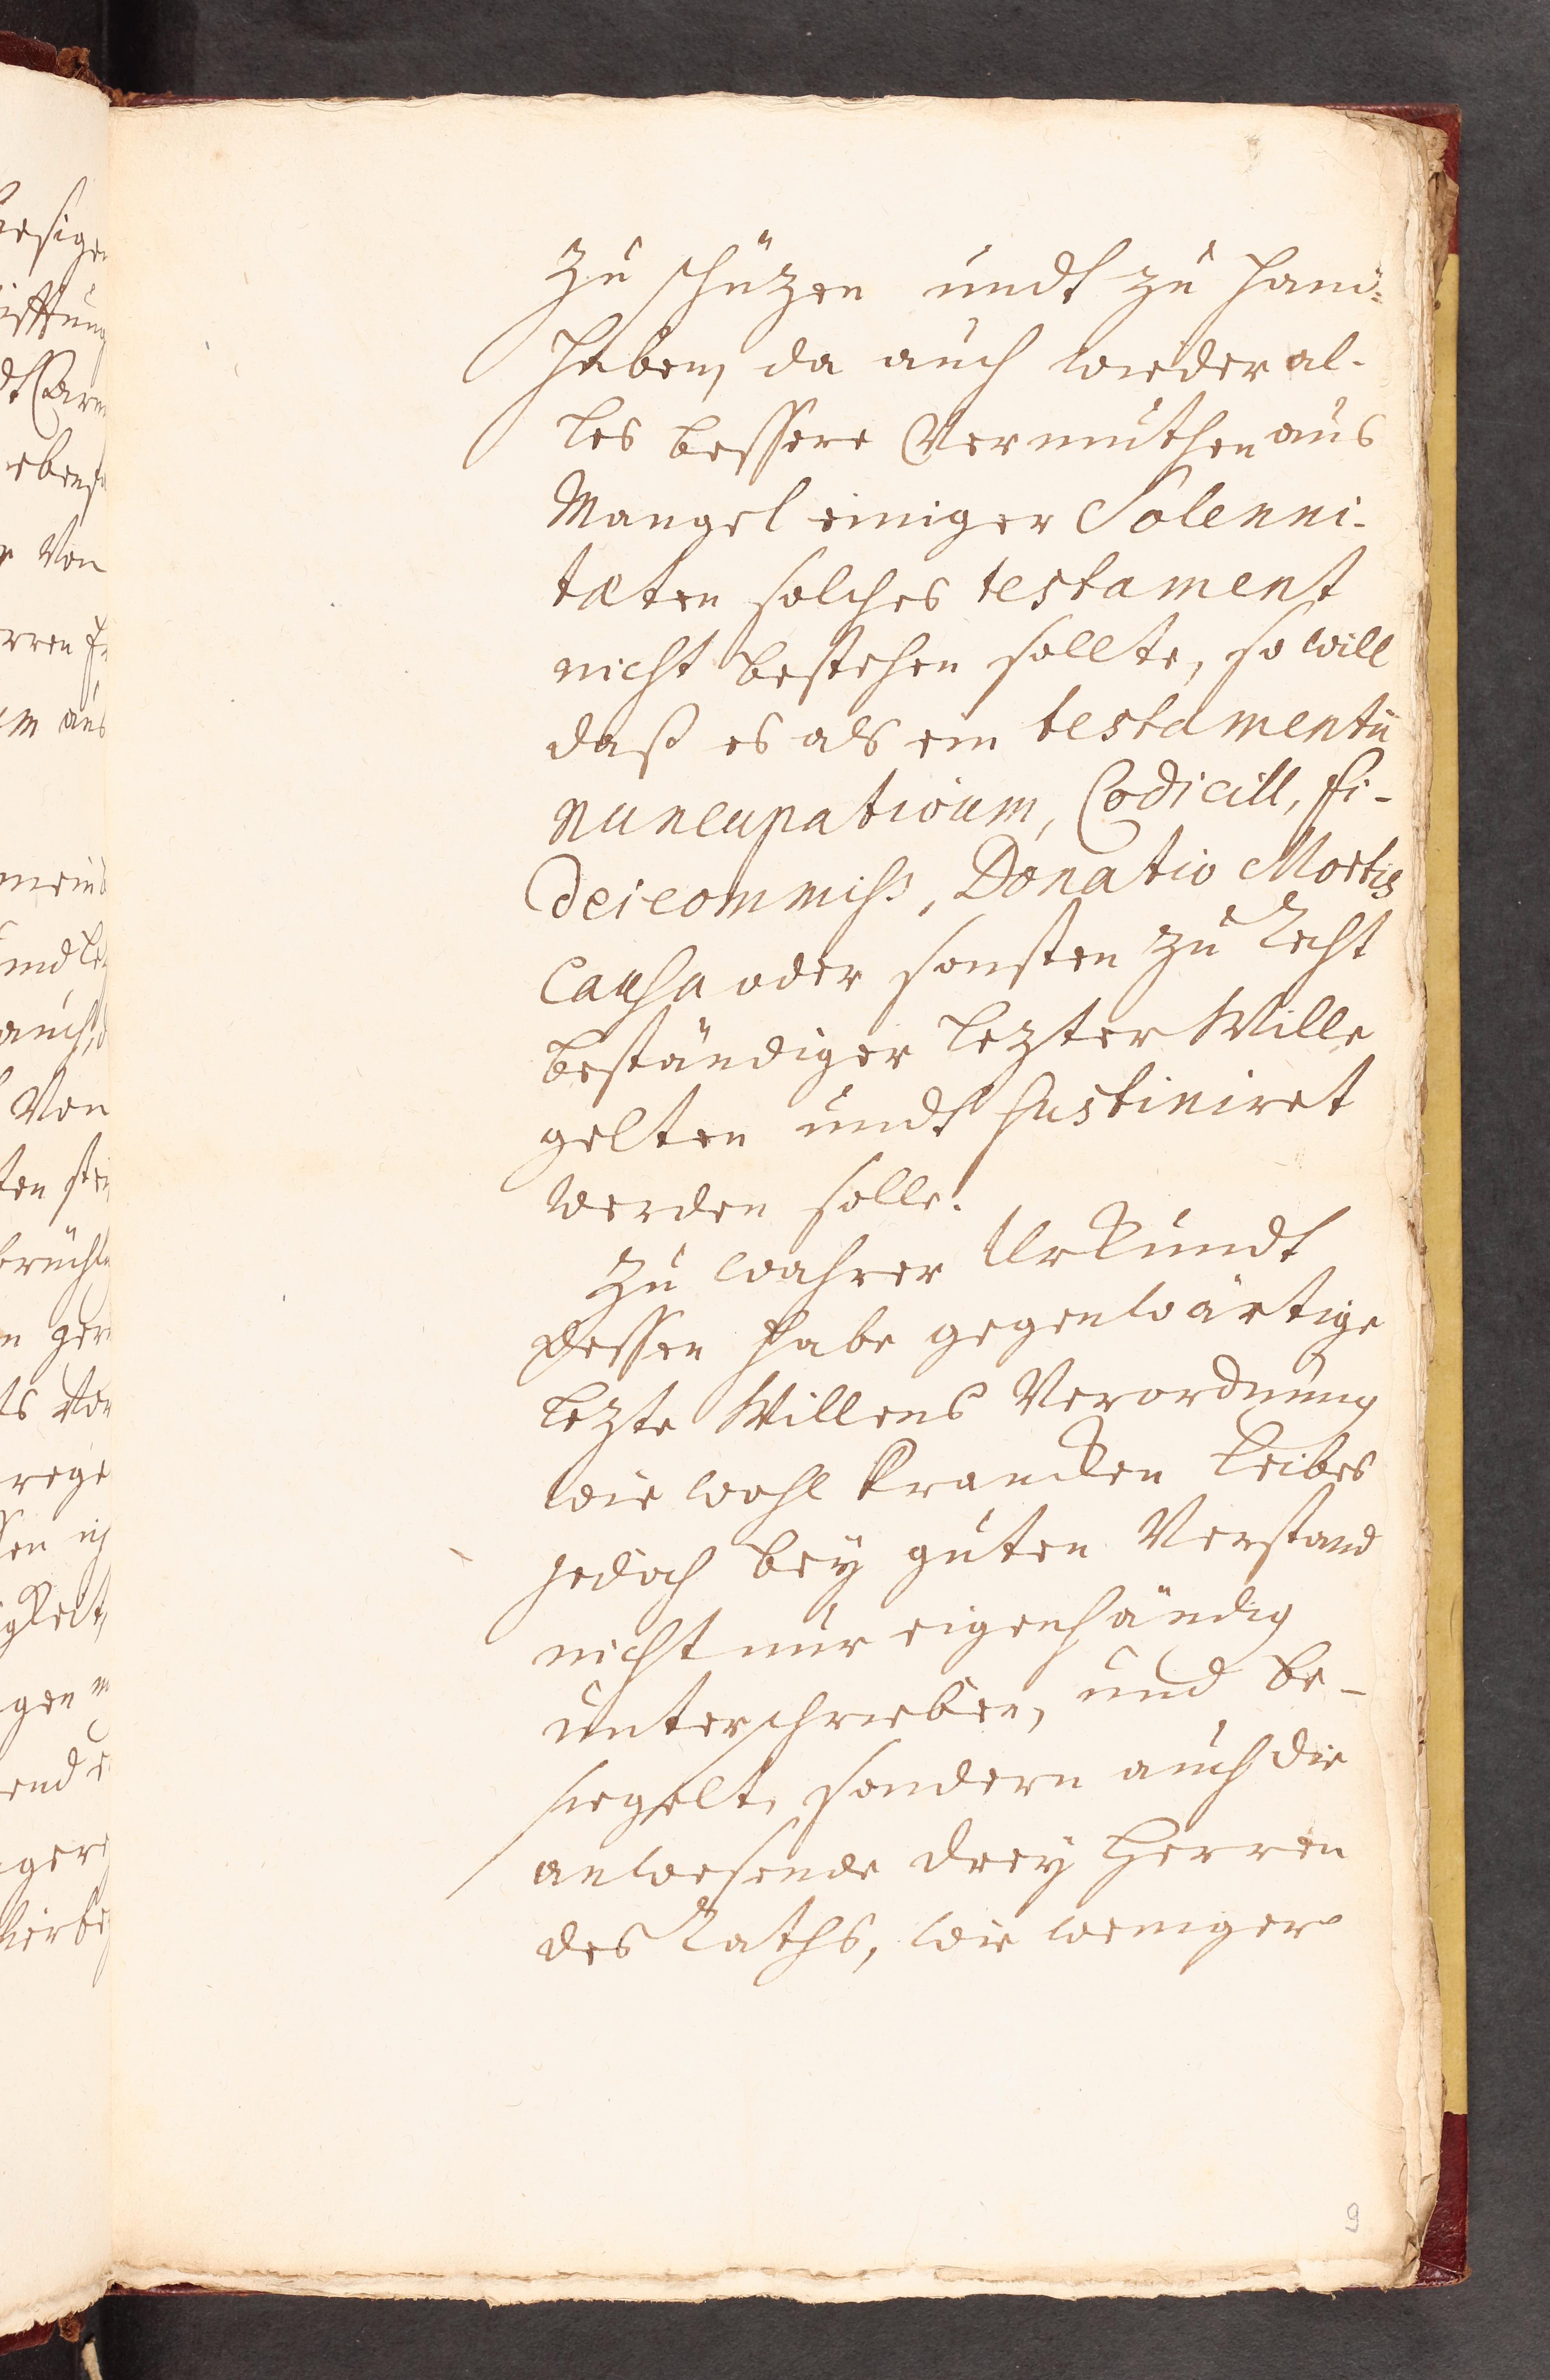 Zu schüzen undt zu hand=
haben, da auch wieder al-
les bessere Vermuthen aus
Mangel einiger Solenni-
tæten solches testament
nicht bestehen sollte, so will
daß es als ein testamentũ
nuncupativum, Codicill, fi-
deicommiss, Donatio Mortis
Causa oder sonsten zu Recht
beständiger lezter Wille
gelten undt sustiniret
werden solle.
Zu wahrer Urkundt
dessen habe gegenwärtige
lezte Willens Verordnung
wie wohl krancken Leibes
jedoch bey guten Verstand
nicht nur eigenhändig
unterschrieben, und be-
siegelt, sondern auch die
anwesende drey Herren
des Raths, wie weniger
9